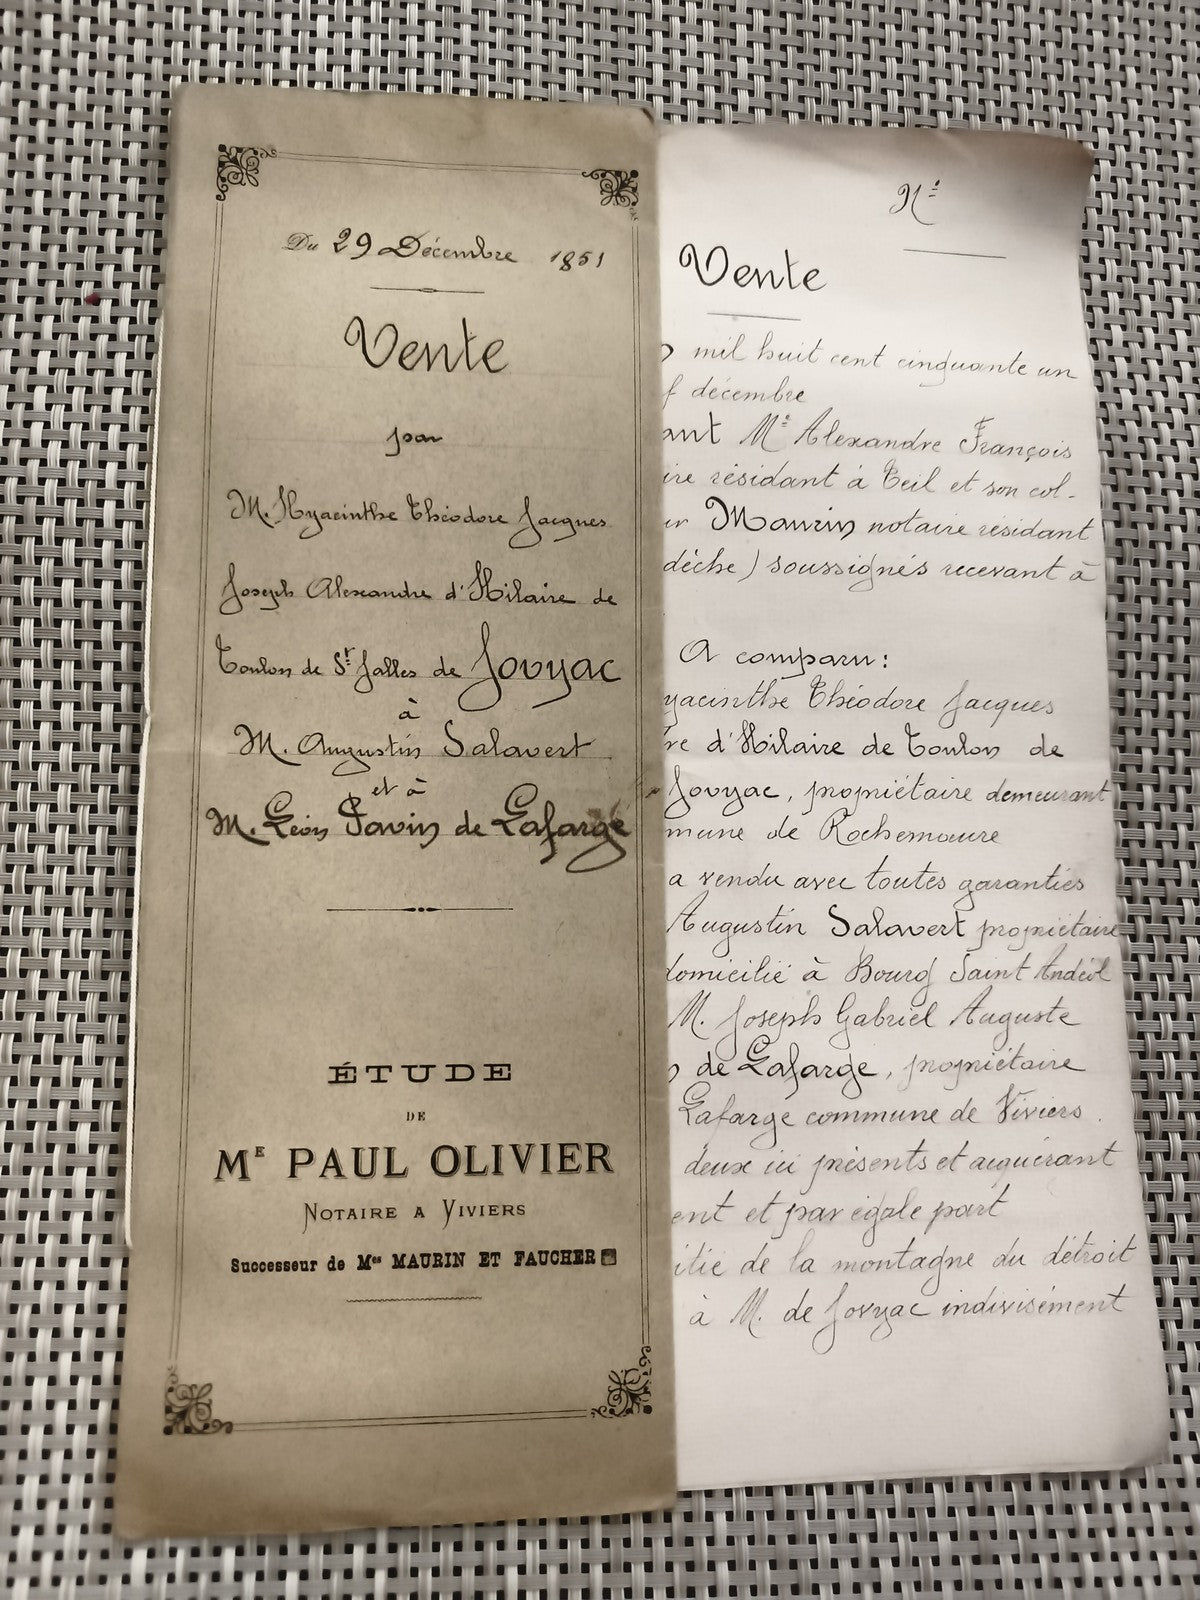 Du 29 Décembre 1851
Vente
par
M. Hyacinthe Théodore Jacques
Joseph Alexandre d'Hilaire de
Toulon de St Jalles de Jovyac
à
M. Augustin Salavert
et à
M. Léon Pavin de Lafarge
ÉTUDE
DE
ME PAUL OLIVIER
NOTAIRE A VIVIERS
Successeur de Mes MAURIN ET FAUCHER
Ne
Vente
mil huit cent cinquante un
f décembre
ant Me Alexandre François
ire résidant à Teil et son col-
ur Maurin notaire résidant
dèche) soussignés recevant à
A comparu:
yacinthe Théodore Jacques
re d'Hilaire de Toulon de
Jovyac, propriétaire demeurant
mune de Rochemaure
a vendu avec toutes garanties
Augustin Salavert propriétaire
domicilié à Bourg Saint Andéol
M. Joseph Gabriel Auguste
de Lafarge, propriétaire
Lafarge commune de Viviers.
deux ici présents et acquérant
ent et par égale part
itié de la montagne du détroit
à M. de Jovyac indivisément